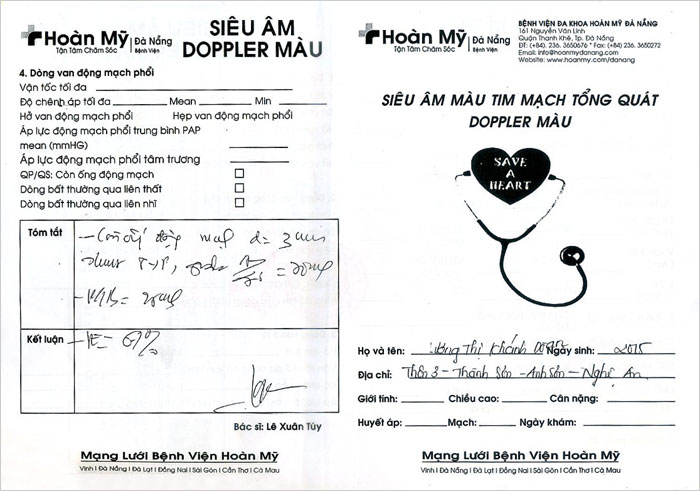 Hoàn Mỹ Đà Nẵng
Tận Tâm Chăm Sóc Bệnh Viện
SIÊU ÂM
DOPPLER MÀU
4. Dòng van động mạch phổi
Vận tốc tối đa
Độ chênh áp tối đa Mean Min
Hở van động mạch phổi Hẹp van động mạch phổi
Áp lực động mạch phổi trung bình PAP
mean (mmHG)
Áp lực động mạch phổi tâm trương
QP/QS: Còn ống động mạch
Dòng bất thường qua liên thất
Dòng bất thường qua liên nhĩ
Tóm tắt
động mạch d= 3 mm
Kết luận
Bác sĩ: Lê Xuân Túy
Mạng Lưới Bệnh Viện Hoàn Mỹ
Vinh I Đà Nẵng I Đà Lạt I Đồng Nai I Sài Gòn I Cần Thơ I Cà Mau
Hoàn Mỹ Đà Nẵng
Tận Tâm Chăm Sóc Bệnh Viện
BỆNH VIỆN ĐA KHOA HOÀN MỸ ĐÀ NẴNG
161 Nguyễn Văn Linh
Quận Thanh Khê, Tp. Đà Nẵng
ĐT: (+84). 236. 3650676 * Fax: (+84) 236. 3650272
Email: info@hoanmydanang.com
Website: www.hoanmy.com/danang
SIÊU ÂM MÀU TIM MẠCH TỔNG QUÁT
DOPPLER MÀU
SAVE
A
HEART
Họ và tên: Thị Khánh Ngày sinh: 2015
Địa chỉ: Thôn 3 - Thành Sơn - Anh Sơn - Nghệ An
Giới tính: Chiều cao: Cân nặng:
Huyết áp: Mạch: Ngày khám:
Mạng Lưới Bệnh Viện Hoàn Mỹ
Vinh I Đà Nẵng I Đà Lạt I Đồng Nai I Sài Gòn I Cần Thơ I Cà Mau